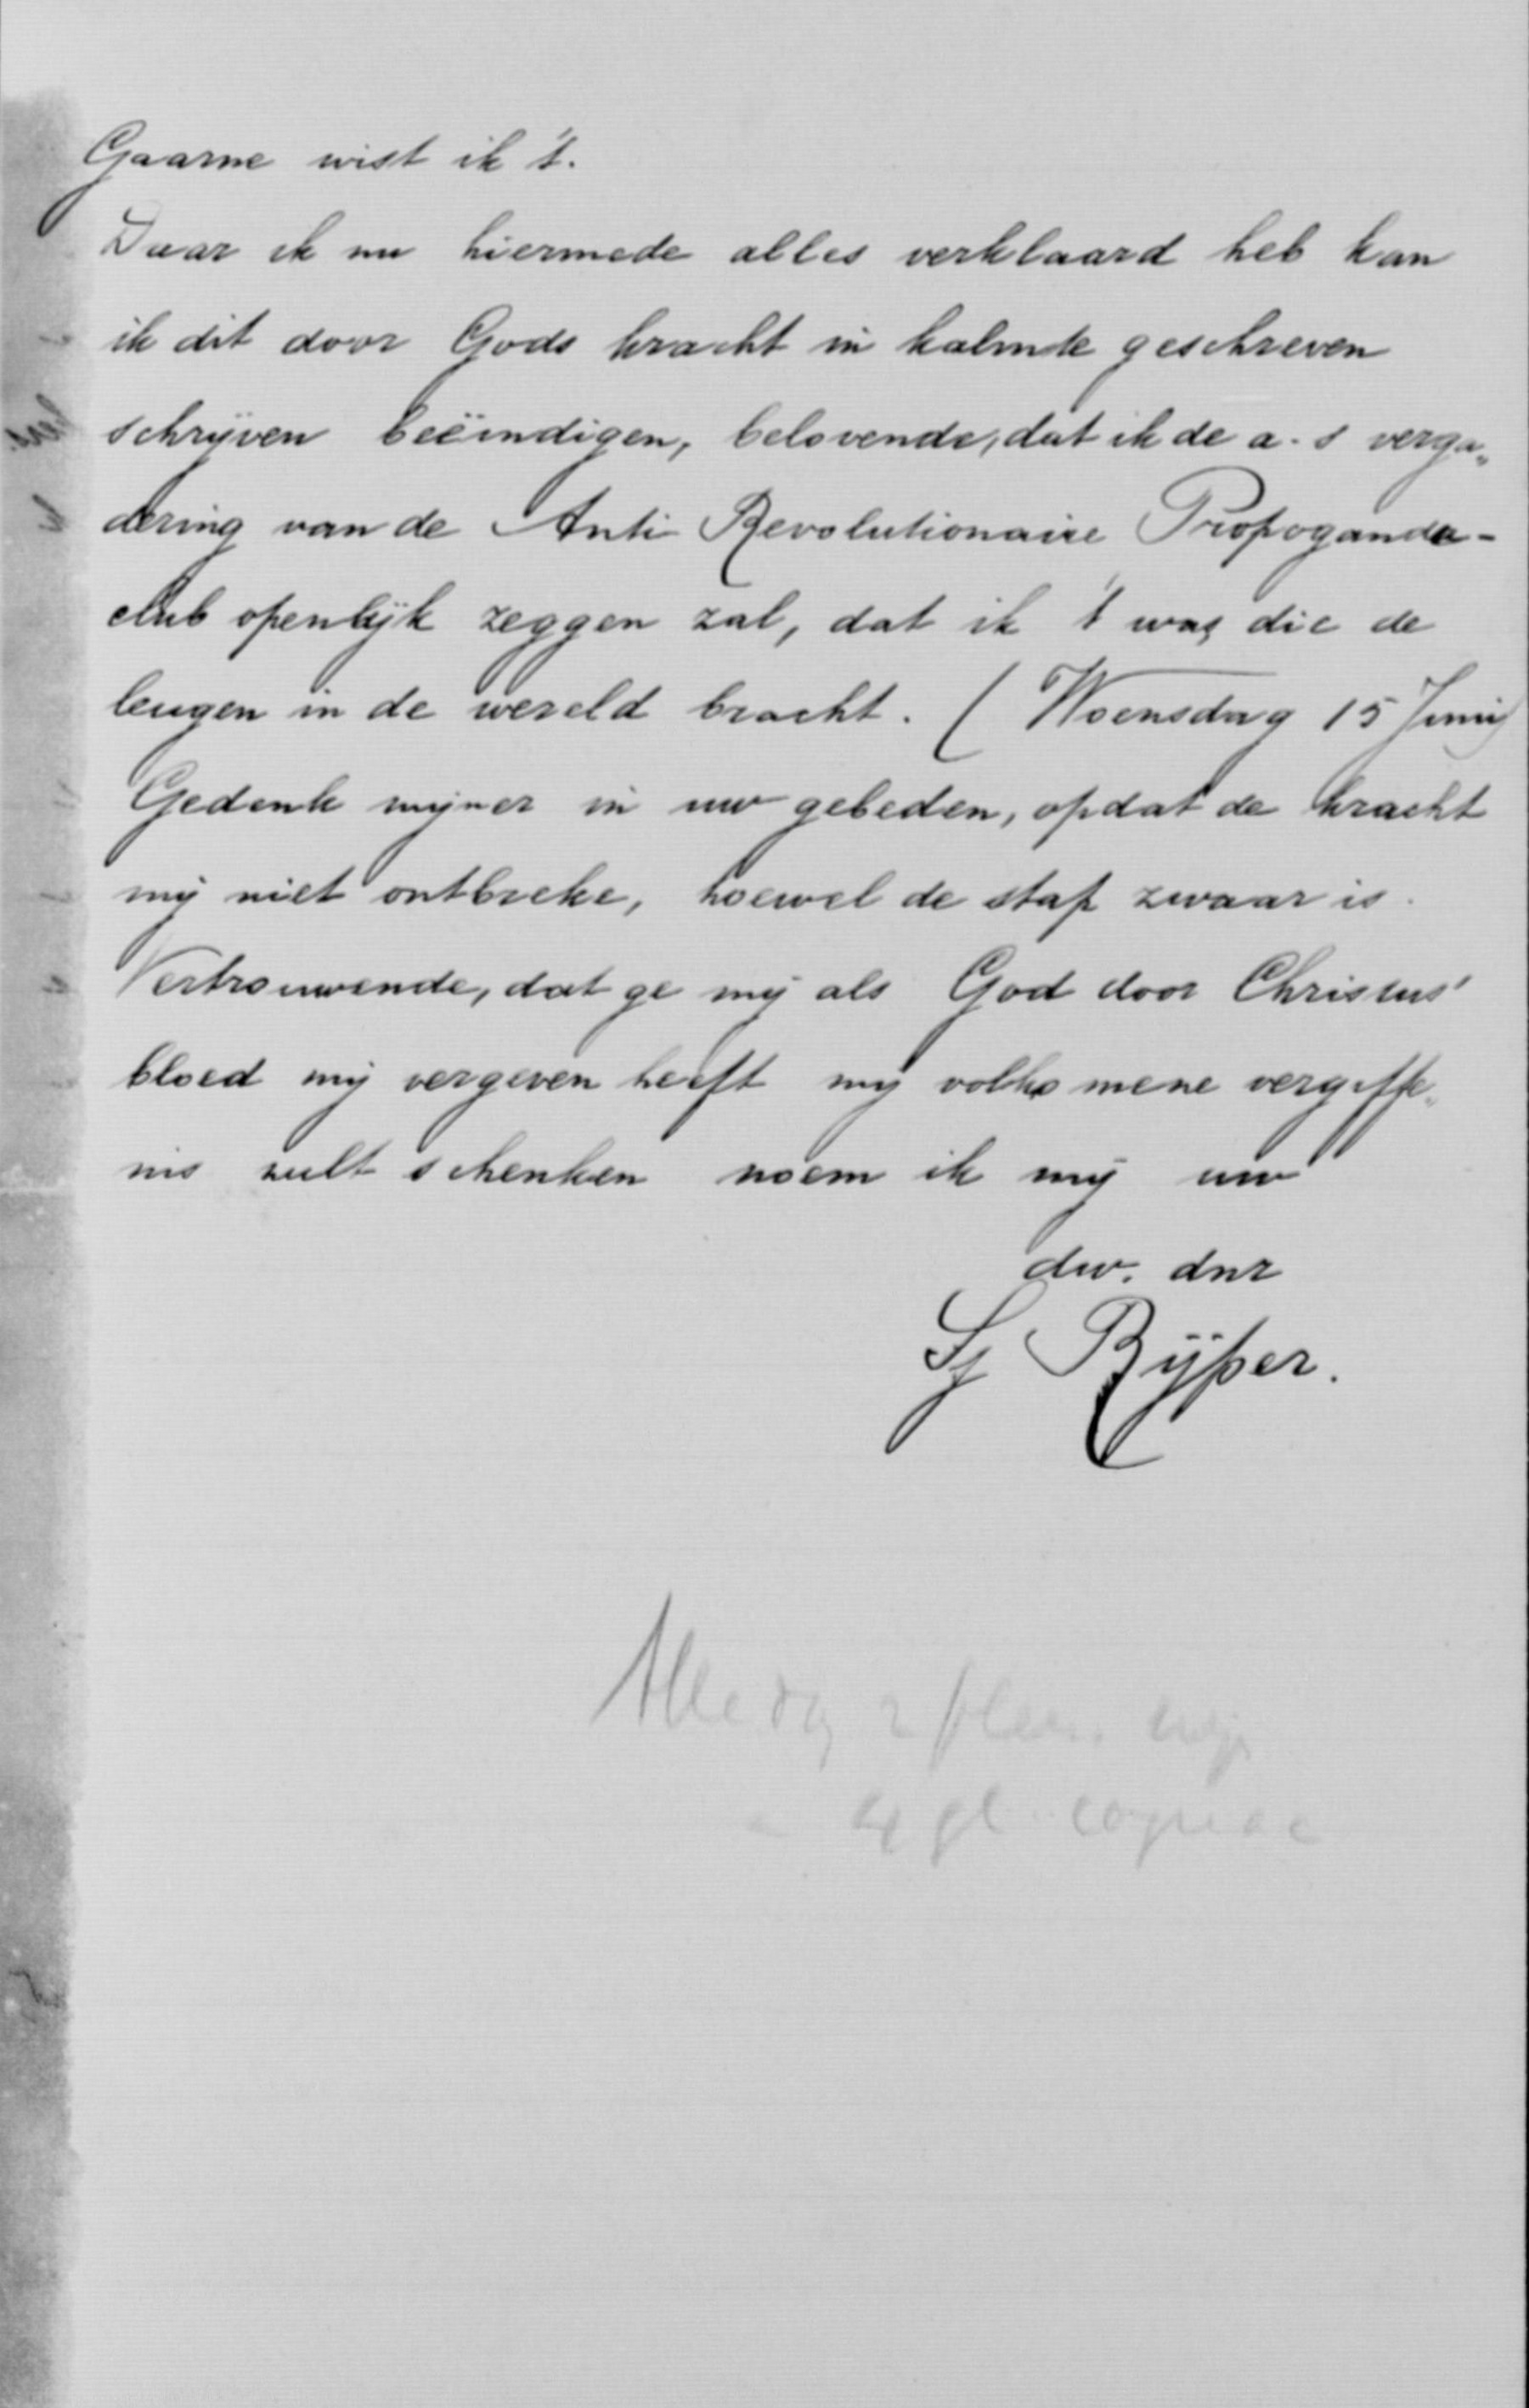 Gaarne wist ik 't.
Daar ik nu hiermede alles verklaard heb kan
ik dit door Gods kracht in kalmte geschreven
schrijven beëindigen, belovende, dat ik de a.s verga„
dering van de Anti Revolutionaire Propoganda-
club openlijk zeggen zal, dat ik 't was die de
leugen in de wereld bracht. (Woensdag 15 Juni)
Gedenk mijner in uw gebeden, opdat de kracht
mij niet ontbreke, hoewel de stap zwaar is.
Vertrouwende, dat ge mij als God door Christus'
bloed mij vergeven heeft mij volkomene vergiffe„
nis zult schenken noem ik mij uw
dw. dnr
Sj Rijper.
4 gl. cognac